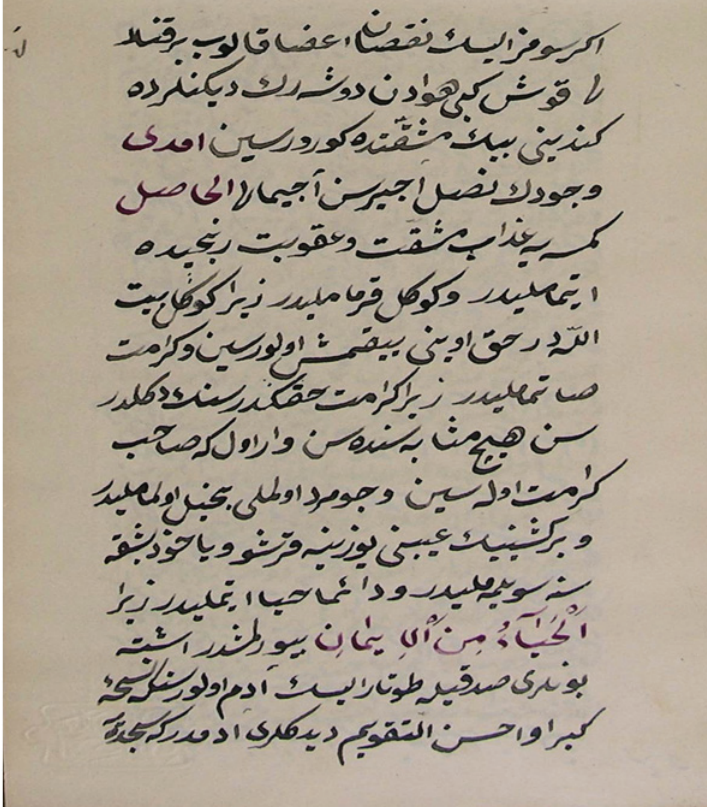 اكر سومز ايسك نقصان اعضا قالوب برقنلد
لها قوش كبى هوادن دوشه رك ديكنلرده
كنديني بيك مشقتده كورورسين امدى
وجودك نصل آجيرسن آجيما الحاصل
كمسه يه عذاب مشقت وعقوبت رنجيده
ايتماملیدر وكوكل قرماملیدر زيرا كوكل بيت
اللّه در حق اوينى ييقمش اولورسين وكرامت
صاتماملیدر زيرا كرامت حقكدر سنك دكلدر
سن هيچ مثابه سنده سن وار اول كه صاحب
كرامت اوله سين وجومرد اولملى بخيل اولماملیدر
وبر كشينيك عيبنى يوزينه قرشو ويا خود بشقه
سنه سويلمه ملیدر ودائما حيا ايتملیدر زيرا
اَلْحَيَآءُ مِنَ الْاِيمَانِ بيورلمشدر اشته
بونلرى صدقيله طوتار ايسك آدم اولورسنكه نسخهٔ
كبرا واحسن التقويم ديدكلرى آدمدر كه سجدهٔ